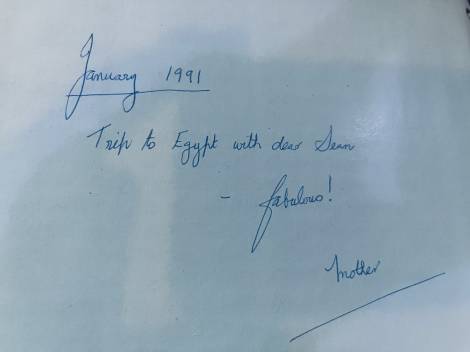 January 1991
Trip to Egypt with dear Sean
- fabulous!
Mother